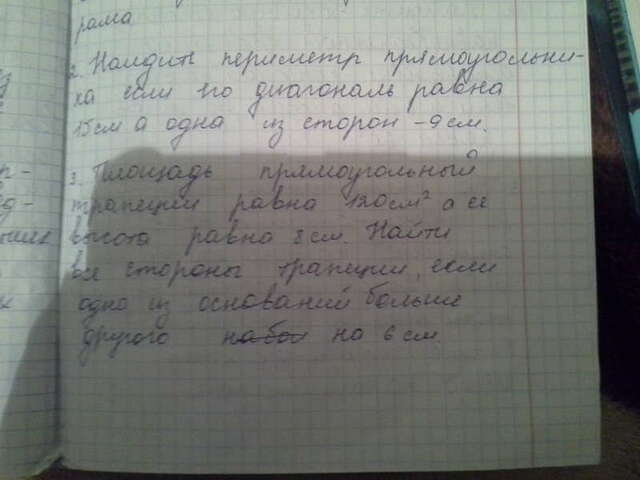 рама
2. Найдите периметр прямоугольни-
ка если его диагональ равна
15см а одна из сторон - 9см.
3. Площадь прямоугольный
трапеции равна 120см² а её
высота равна 8см. Найти
все стороны трапеции, если
одно из оснований больше
другого на 6 см